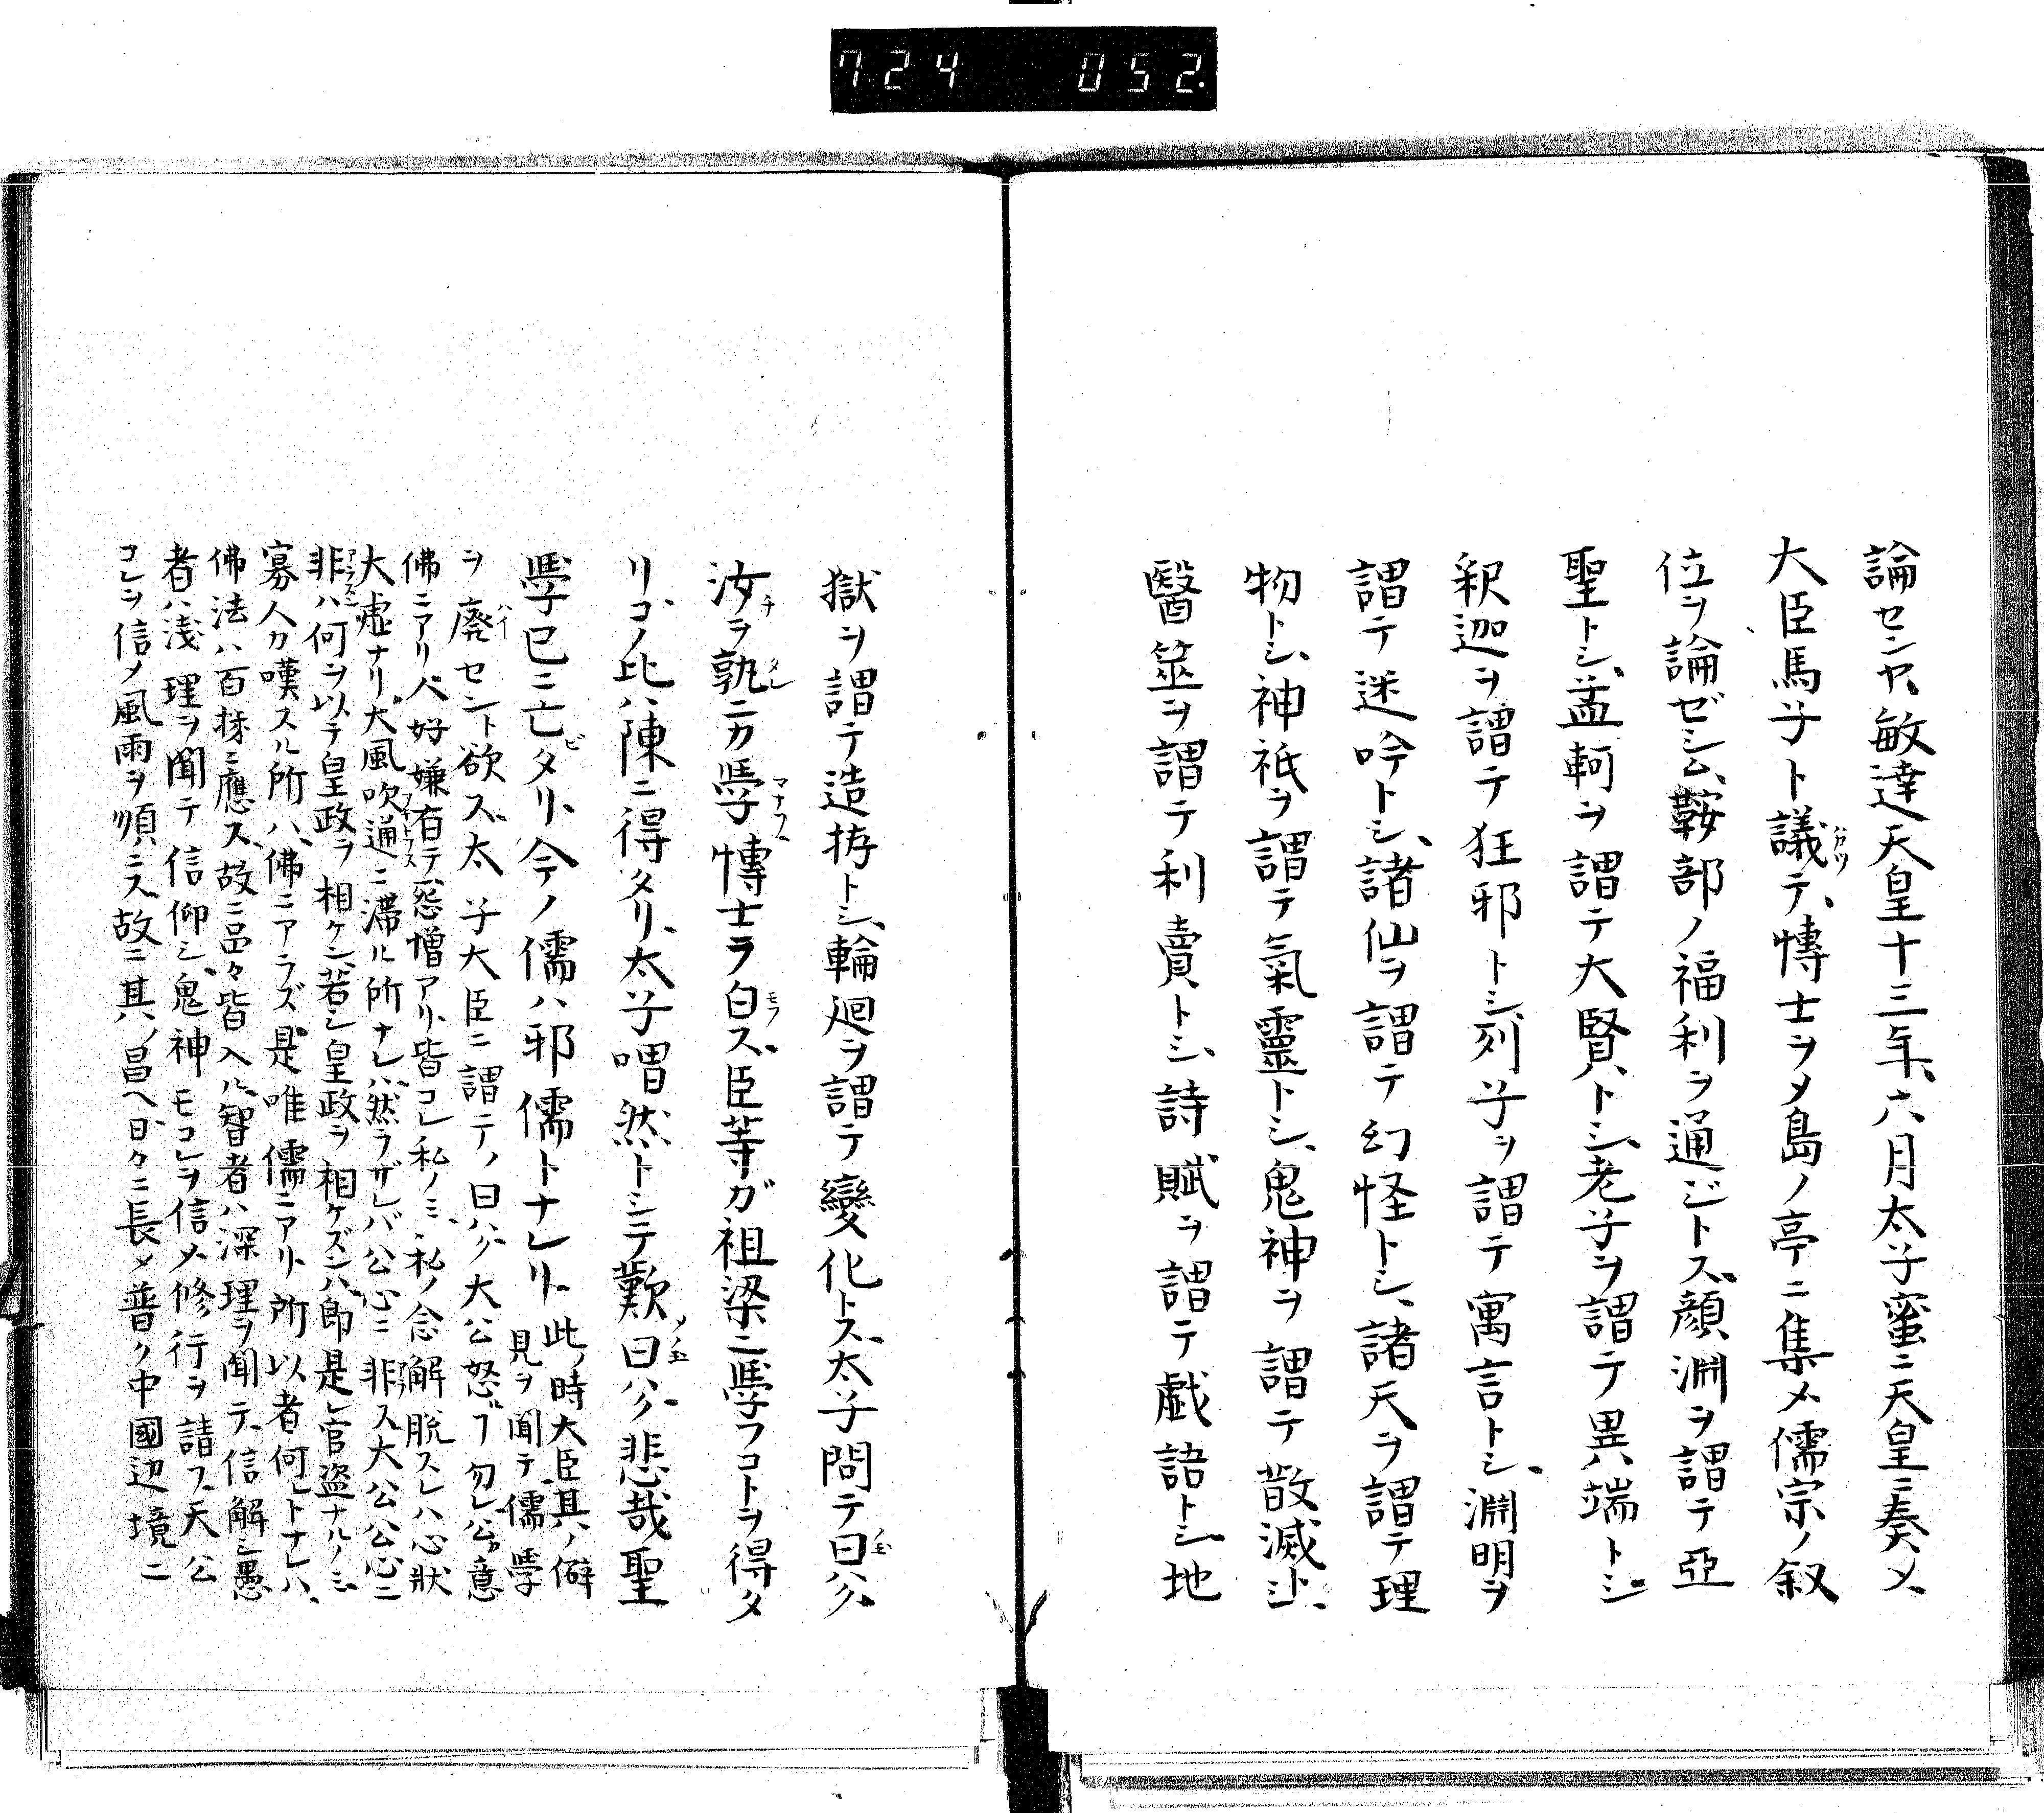 724 052.
論センヤ、敏達天皇十三年、六月太子蜜ニ天皇ニ奏メ、
大臣馬子ト議テ、博士ヲメ島ノ亭ニ集メ儒宗ノ叙
位ヲ論ゼシム、鞍部ノ福利ヲ通ジトス、顔淵ヲ謂テ亞
聖トシ、孟軻ヲ謂テ大賢トシ、老子ヲ謂テ異端トシ
釈迦ヲ謂テ狂邪トシ、列子ヲ謂テ寓言トシ、淵明ヲ
謂テ迷吟トシ、諸仙ヲ謂テ幻怪トシ、諸天ヲ謂テ理
物トシ、神祇ヲ謂テ氣靈トシ、鬼神ヲ謂テ散滅トシ、
醫筮ヲ謂テ利賣トシ、詩賦ヲ謂テ戯語トシ、地
獄ヲ謂テ造拵トシ、輪廻ヲ謂テ變化トス、太子問テ曰ハク、
汝ヲ孰ニカ學博士ラ白ス、臣等ガ祖梁ニ學フコトヲ得タ
リ、コノ比ハ陳ニ得タリ、太子喟然トシテ歎曰ハク、悲哉聖
學已ニ亡タリ、今ノ儒ハ邪儒トナレリ、此ノ時大臣其ノ僻
見ヲ聞テ儒學
ヲ廃セント欲ス、太子大臣ニ謂テノ曰ハク、大公怒ルコト勿レ、公ガ意
佛ニアリ、人好嫌有テ、怨憎アリ、皆コレ私ノミ、私ノ念解脱スレハ心狀
大虚ナリ、大風吹通ニ滞ル所ナレバ、然ラザレバ公心ニ非ス大公公心ニ
非ハ何ヲ以テ皇政ヲ相ケン、若シ皇政ヲ相ケズンハ、即是レ官盗ナルノミ
寡人カ嘆スル所ハ、佛ニアラズ、是唯儒ニアリ、所以者何レトナレハ、
佛法ハ百揉ニ應ス、故ニ品々皆入ル、智者ハ深理ヲ聞テ、信解シ、愚
者ハ淺理ヲ聞テ信仰シ、鬼神モコレヲ信メ、修行ヲ請フ、天公
コレヲ信メ風雨ヲ順ニス、故ニ其ノ昌ヘ日々ニ長メ普ク中國辺境ニ